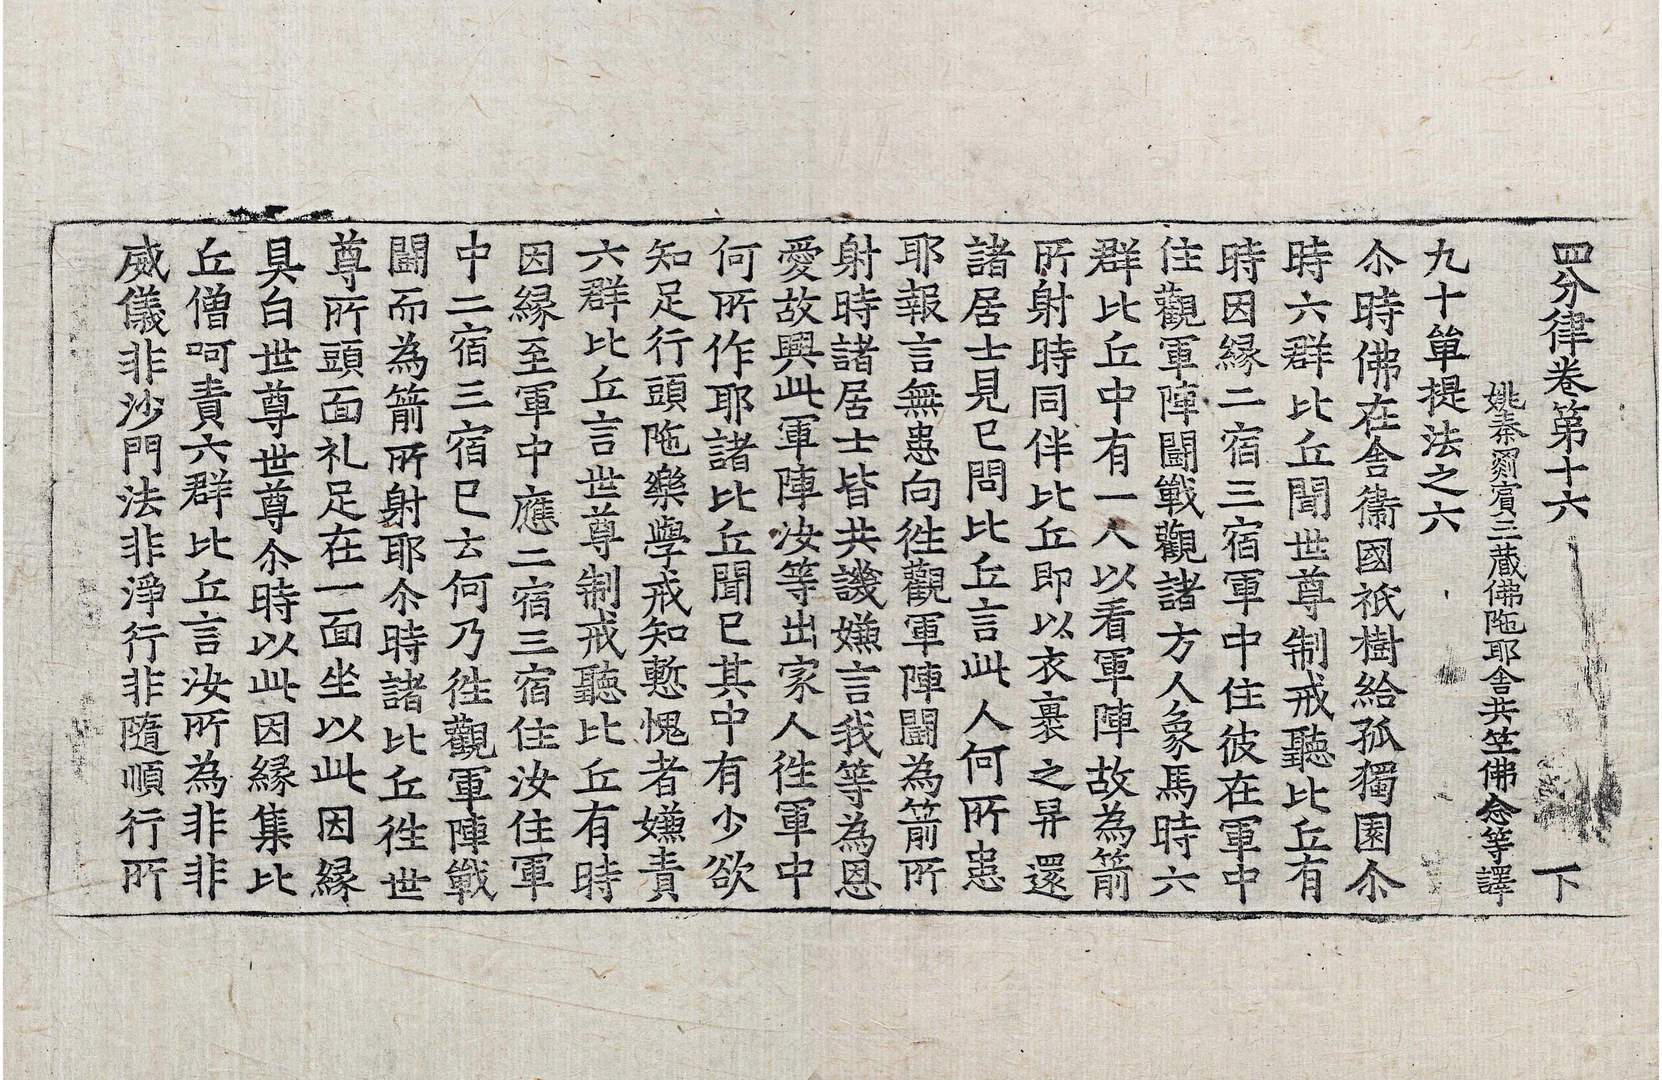 四分律卷第十六 下
姚秦罽賓三藏佛陁耶舍共竺佛念等譯
九十單提法之六
尒時佛在舍衞國祇樹給孤獨園尒
時六群比丘聞世尊制戒聽比丘有
時因緣二宿三宿軍中住彼在軍中
住觀軍陣鬪戰觀諸方人象馬時六
群比丘中有一人以看軍陣故為箭
所射時同伴比丘即以衣裹之舁還
諸居士見已問比丘言此人何所患
耶報言無患向徃觀軍陣鬪為箭所
射時諸居士皆共譏嫌言我等為恩
愛故興此軍陣汝等出家人徃軍中
何所作耶諸比丘聞已其中有少欲
知足行頭陁樂學戒知慙愧者嫌責
六群比丘言世尊制戒聽比丘有時
因緣至軍中應二宿三宿住汝住軍
中二宿三宿已云何乃徃觀軍陣戰
鬪而為箭所射耶尒時諸比丘徃世
尊所頭面礼足在一面坐以此因緣
具白世尊世尊尒時以此因緣集比
丘僧呵責六群比丘言汝所為非非
威儀非沙門法非淨行非隨順行所